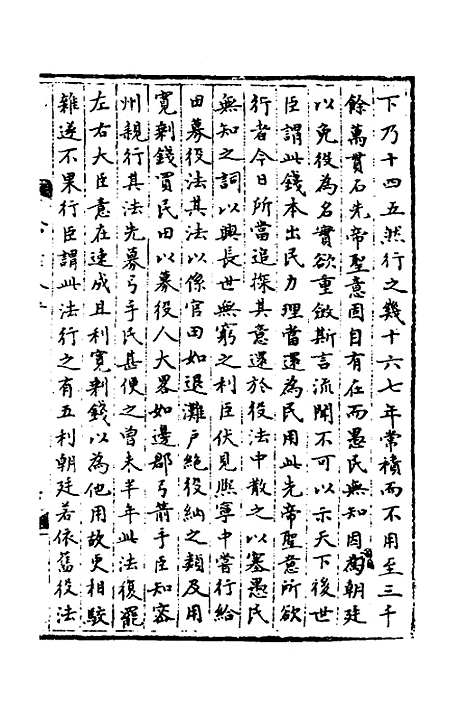 下乃十四五然行之幾十六七年常積而不用至三千
餘萬貫石先帝聖意固自有在而愚民無知因謂朝廷
以免役為名實欲重斂斯言流聞不可以示天下後世
臣謂此錢本出民力理當還為民用此先帝聖意所欲
行者今日所當追探其意還於役法中散之以塞愚民
無知之詞以興長世無窮之利臣伏見熙寧中嘗行給
田募役法其法以係官田如退灘戶絕役納之類及用
寬剩錢買民田以募役人大畧如邊郡弓箭手臣知密
州親行其法先募弓手民甚便之曾未半年此法復罷
左右大臣意在速成且利寬剩錢以為他用故更相駮
難遂不果行臣謂此法行之有五利朝廷若依舊役法